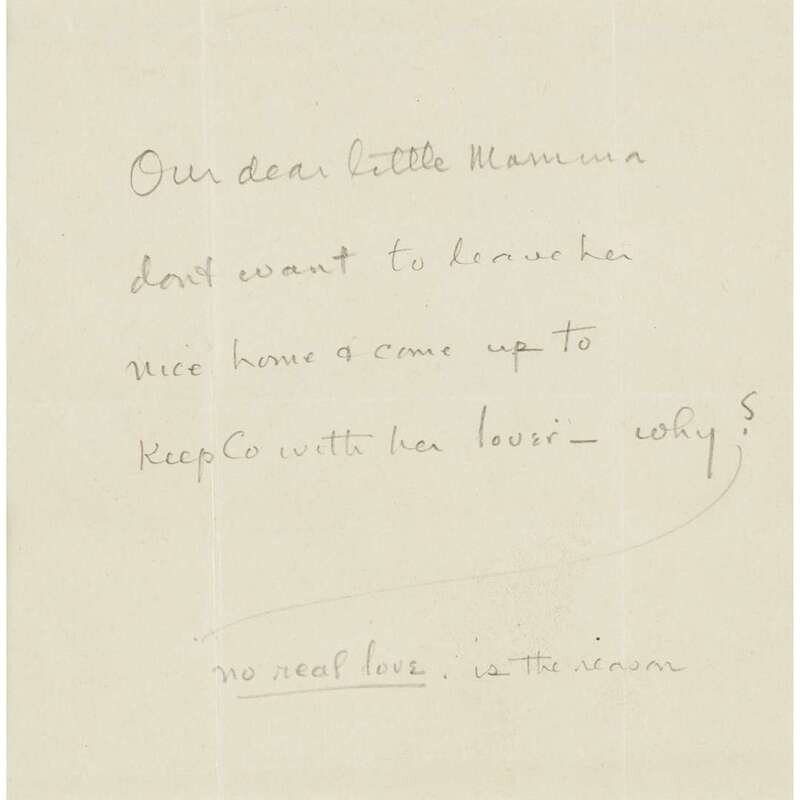 Our dear little Mamma
dont want to leave her
nice home & come up to
Keep Co with her lover – why?
no real love. is the reason